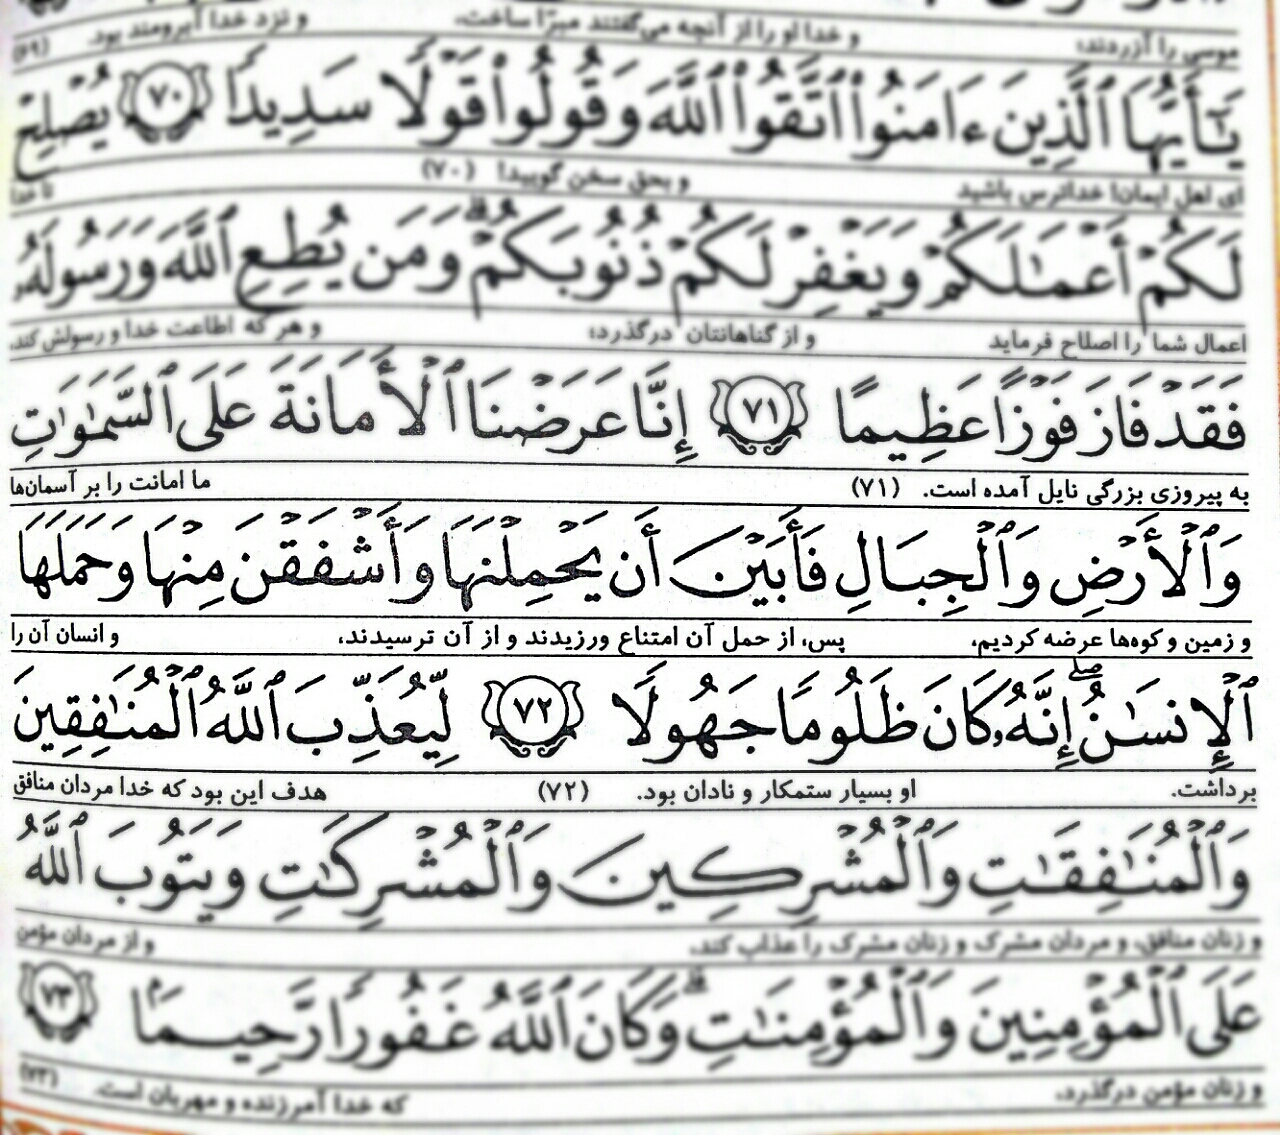 موسی را آزردند؛ و خدا او را از آنچه می‌گفتند مبرّا ساخت، و نزد خدا آبرومند بود. (۶۹)
يَـٰٓأَيُّهَا ٱلَّذِينَ ءَامَنُوا۟ ٱتَّقُوا۟ ٱللَّهَ وَقُولُوا۟ قَوْلًا سَدِيدًا ﴿٧٠﴾ يُصْلِحْ
ای اهل ایمان! خداترس باشید و بحق سخن گویید! (۷۰) تا خدا
لَكُمْ أَعْمَـٰلَكُمْ وَيَغْفِرْ لَكُمْ ذُنُوبَكُمْ ۗ وَمَن يُطِعِ ٱللَّهَ وَرَسُولَهُۥ
اعمال شما را اصلاح فرماید و از گناهانتان درگذرد؛ و هر که اطاعت خدا و رسولش کند،
فَقَدْ فَازَ فَوْزًا عَظِيمًا ﴿٧١﴾ إِنَّا عَرَضْنَا ٱلْأَمَانَةَ عَلَى ٱلسَّمَـٰوَٰتِ
به پیروزی بزرگی نایل آمده است. (۷۱) ما امانت را بر آسمان‌ها
وَٱلْأَرْضِ وَٱلْجِبَالِ فَأَبَيْنَ أَن يَحْمِلْنَهَا وَأَشْفَقْنَ مِنْهَا وَحَمَلَهَا
و زمین و کوه‌ها عرضه کردیم، پس، از حمل آن امتناع ورزیدند و از آن ترسیدند، و انسان آن را
ٱلْإِنسَـٰنُ ۖ إِنَّهُۥ كَانَ ظَلُومًا جَهُولًا ﴿٧٢﴾ لِّيُعَذِّبَ ٱللَّهُ ٱلْمُنَـٰفِقِينَ
برداشت. او بسیار ستمکار و نادان بود. (۷۲) هدف این بود که خدا مردان منافق
وَٱلْمُنَـٰفِقَـٰتِ وَٱلْمُشْرِكِينَ وَٱلْمُشْرِكَـٰتِ وَيَتُوبَ ٱللَّهُ
و زنان منافق، و مردان مشرک و زنان مشرک را عذاب کند، و از مردان مؤمن
عَلَى ٱلْمُؤْمِنِينَ وَٱلْمُؤْمِنَـٰتِ ۗ وَكَانَ ٱللَّهُ غَفُورًا رَّحِيمًۢا ﴿٧٣﴾
و زنان مؤمن درگذرد، که خدا آمرزنده و مهربان است. (۷۳)